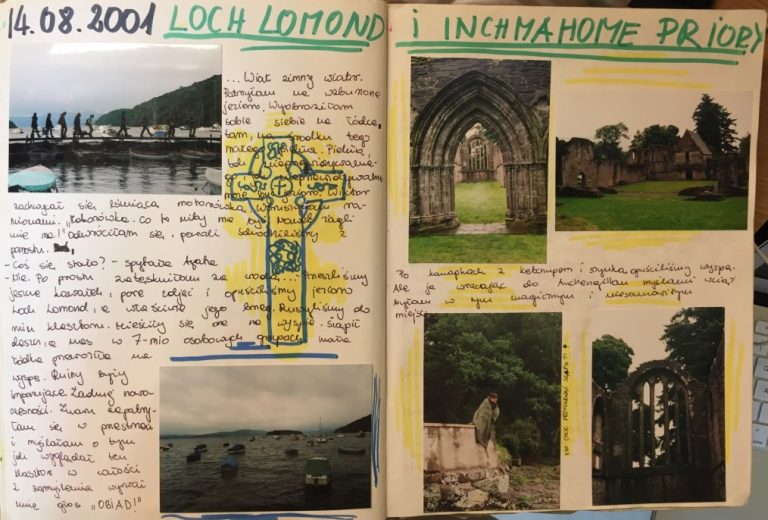 14.08.2001 LOCH LOMOND
i INCHMAHOME PRIORY
... Wiał zimny wiatr.
Patrzyłam na wzburzone
jezioro. Wyobraziłam
sobie siebie na łódce,
tam, na środku tego
zachwycał się lśniącą motorówką. Wzruszyłam ra-
mionami. "Motorówka. Co to niby ma być. Nawet żagli
nie ma!" Odwróciłam się, panali schodziliśmy z
pomostu.
- Coś się stało? - spytała Agata
- Nie. Po prostu zatęskniłam za wodą... Przeszliśmy
jeszcze kawałek, parę zdjęć i opuściliśmy jezioro
Loch Lomond, a właściwie jego brzeg. Ruszyliśmy do
ruin klasztoru. Mieściły się one na wyspie. Siąpił
deszcz, a nas w 7-mio osobowych grupach mała
łódka przewoziła na
wyspę. Ruiny były
imponujące. Żadnej nowo-
czesności. Znów zapatrzy-
łam się w przestrzeń
i myślałam o tym
jak wyglądał ten
klasztor w całości
Z zamyślenia wyrwał
mnie głos "OBIAD!"
Po kanapkach z ketchupem i szynką opuściliśmy wyspę.
Ale ja wracając do Auchengillan myślami wciąż
byłam w tym magicznym i niesamowitym
miejscu